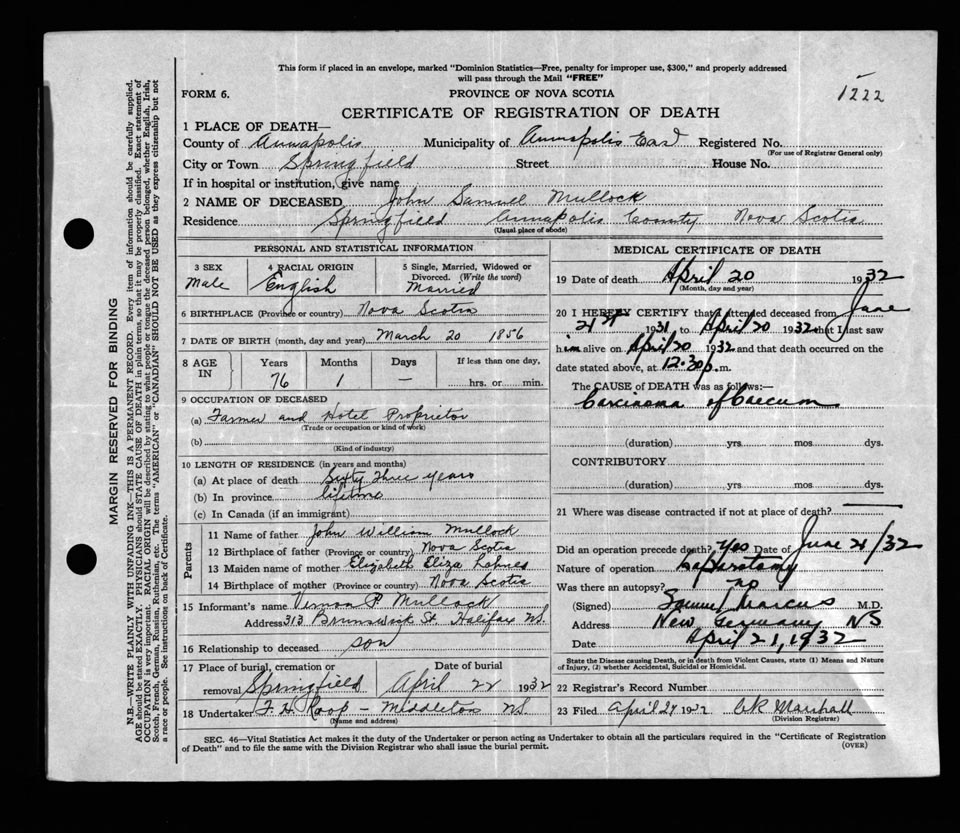 This form if placed in an envelope, marked "Dominion Statistics—Free, penalty for improper use, $300," and properly addressed
will pass through the Mail "FREE"
1222
FORM 6. PROVINCE OF NOVA SCOTIA
CERTIFICATE OF REGISTRATION OF DEATH
1 PLACE OF DEATH—
County of Annapolis Municipality of Annapolis East Registered No.
(For use of Registrar General only)
City or Town Springfield Street House No.
If in hospital or institution, give name
2 NAME OF DECEASED John Samuel Mullock
Residence Springfield Annapolis County Nova Scotia
(Usual place of abode)
PERSONAL AND STATISTICAL INFORMATION
3 SEX 4 RACIAL ORIGIN 5 Single, Married, Widowed or
Divorced. (Write the word)
Male English Married
6 BIRTHPLACE (Province or country) Nova Scotia
7 DATE OF BIRTH (month, day and year) March 20 1856
8 AGE IN Years Months Days If less than one day,
76 1 — hrs. or min.
9 OCCUPATION OF DECEASED
(a) Farmer and Hotel Proprietor
(Trade or occupation or kind of work)
(b)
(Kind of industry)
10 LENGTH OF RESIDENCE (in years and months)
(a) At place of death Sixty three years
(b) In province lifetime
(c) In Canada (if an immigrant)
Parents
11 Name of father John William Mullock
12 Birthplace of father (Province or country) Nova Scotia
13 Maiden name of mother Elizabeth Eliza Lohnes
14 Birthplace of mother (Province or country) Nova Scotia
15 Informant's name Vernon P. Mullock
Address 313 Brunswick St. Halifax N.S.
16 Relationship to deceased son
17 Place of burial, cremation or Date of burial
removal Springfield April 22 1932
18 Undertaker F. H. Roop — Middleton NS
(Name and address)
MEDICAL CERTIFICATE OF DEATH
19 Date of death April 20 1932
(Month, day and year)
20 I HEREBY CERTIFY that I attended deceased from June
21st 1931 to April 20 1932 that I last saw
him alive on April 20 1932 and that death occurred on the
date stated above, at 12.30 p.m.
The CAUSE of DEATH was as follows:—
Carcinoma of Caecum
(duration) yrs mos dys.
CONTRIBUTORY
(duration) yrs mos dys.
21 Where was disease contracted if not at place of death?
Did an operation precede death? Yes Date of June 21/32
Nature of operation Laparotomy
Was there an autopsy? no
(Signed) Samuel Marcus M.D.
Address New Germany NS
Date April 21, 1932
State the Disease causing Death, or in death from Violent Causes, state (1) Means and Nature
of Injury, (2) whether Accidental, Suicidal or Homicidal.
22 Registrar's Record Number
23 Filed April 27 1932 Marshall
(Division Registrar)
SEC. 46—Vital Statistics Act makes it the duty of the Undertaker or person acting as Undertaker to obtain all the particulars required in the "Certificate of Registration
of Death" and to file the same with the Division Registrar who shall issue the burial permit. (OVER)
MARGIN RESERVED FOR BINDING
N.B.—WRITE PLAINLY WITH UNFADING INK—THIS IS A PERMANENT RECORD. Every item of information should be carefully supplied.
AGE should be stated EXACTLY. PHYSICIANS should STATE CAUSE OF DEATH in plain terms, so that it may be properly classified. Exact statement of
OCCUPATION is very important. RACIAL ORIGIN will be described by stating to what people or tongue the deceased person belonged, whether English, Irish,
Scotch, French, German, Russian, Ruthenian, etc. The terms "AMERICAN" or "CANADIAN" SHOULD NOT BE USED as they express citizenship but not
a race or people. See instructions on back of Certificate.